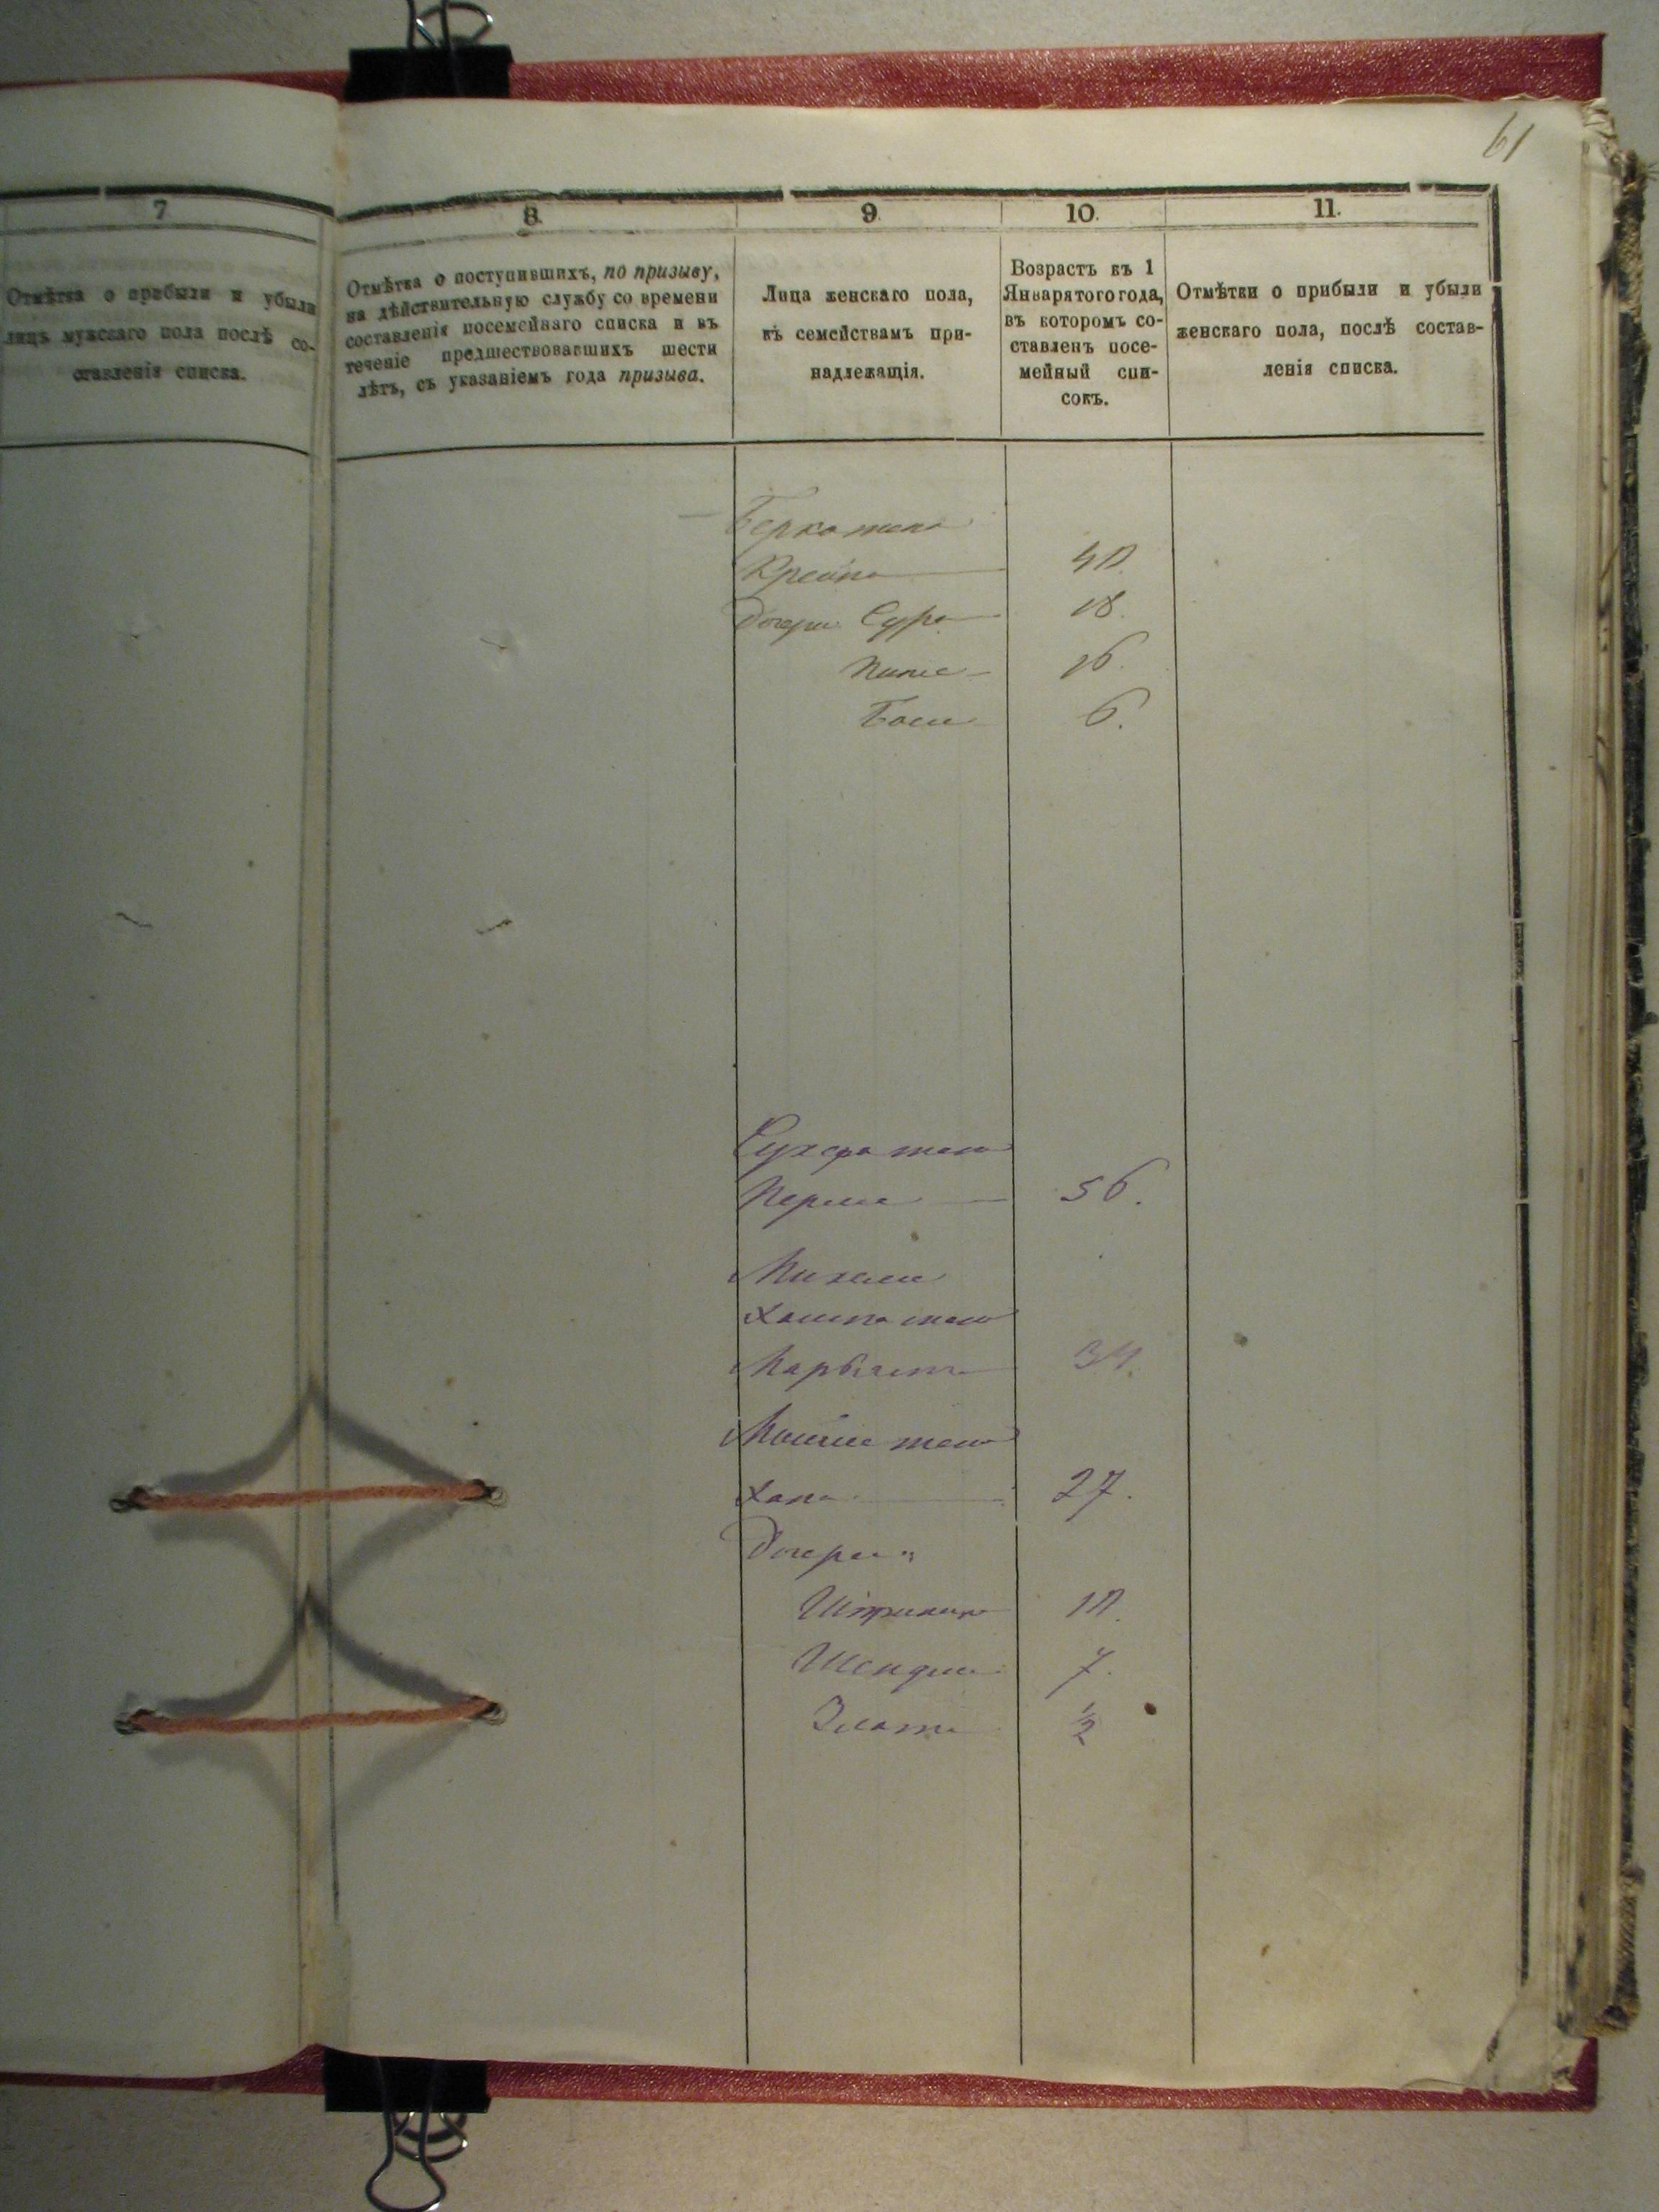 61
7
Отмѣтка о прибыли и убыли
лицъ мужскаго пола послѣ со-
ставленія списка.
8.
Отмѣтка о поступившихъ, по призыву,
на дѣйствительную службу со времени
составленія посемейнаго списка и въ
теченіе предшествовавшихъ шести
лѣтъ, съ указаніемъ года призыва.
9.
Лица женскаго пола,
къ семействамъ при-
надлежащія.
10.
Возрастъ къ 1
Января того года,
въ которомъ со-
ставленъ посе-
мейный спи-
сокъ.
11.
Отмѣтки о прибыли и убыли
женскаго пола, послѣ состав-
ленія списка.
Берка жена
Крейна 40.
Дочери Сура 18.
16.
6.
жена
56.
Михеля
жена
34.
жена
Хана 27.
Дочери
10.
7.
Злата 1/2